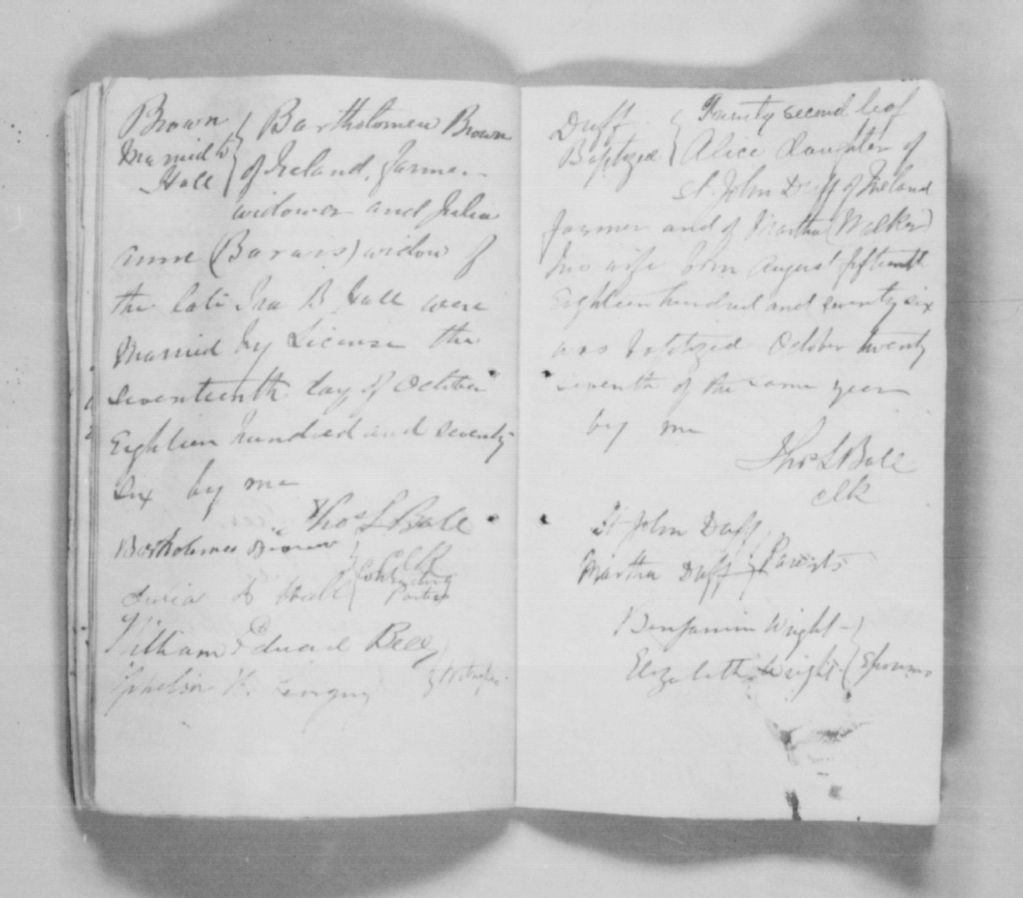 Brown
Married to
Hall
Bartholomew Brown
of Ireland, farmer
widower and Julia
anne (Barvis) widow of
the late Ira B Hall were
Married by License the
seventeenth day of October
Eighteen hundred and seventy-
six by me
Thos L Ball
Clk
Bartholomew Brown
Julia A Hall
Contracting
Parties
William Edward Bell
H.
Duff
Baptized
Twenty second leaf
Alice daughter of
St. John Duff of Ireland
farmer and of Martha (Walker)
his wife born August fifteenth
Eighteen hundred and seventy six
was babtized October twenty
seventh of the same year
by me
Thos L Ball
clk
St John Duff
Martha Duff
Parents
Benjamin Wright
Elizabeth Wright
Sponsors